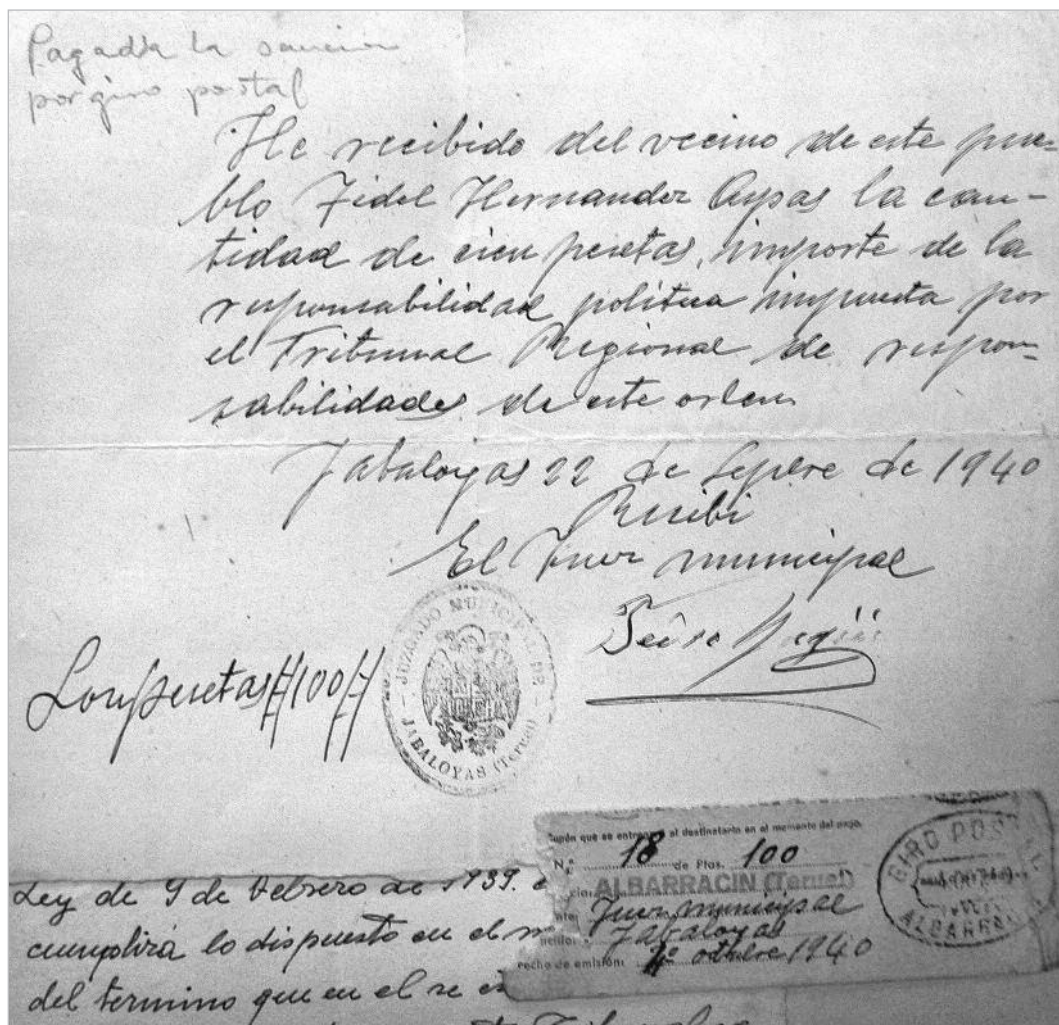 Pagada la sanción
por giro postal
He recibido del vecino de este pue-
blo Fidel Hernandez Aspas la can-
tidad de cien pesetas, importe de la
responsabilidad politica impuesta por
el Tribunal Regional de respon-
sabilidades de este orden
Jabaloyas 22 de Sepbre de 1940
Recibi
El Juez municipal
Son pesetas #100#
JUZGADO MUNICIPAL DE
JABALOYAS (Teruel)
Cupón que se entrega al destinatario en el momento del pago.
N.º 18 de Ptas. 100
ALBARRACIN (Teruel)
Juez municipal
Jabaloyas
Fecho de emisión: 1º octubre 1940
GIRO POSTAL
ALBARRA
Ley de 9 de Febrero de 1939.
cumplirá lo dispuesto en el
del termino que en el se